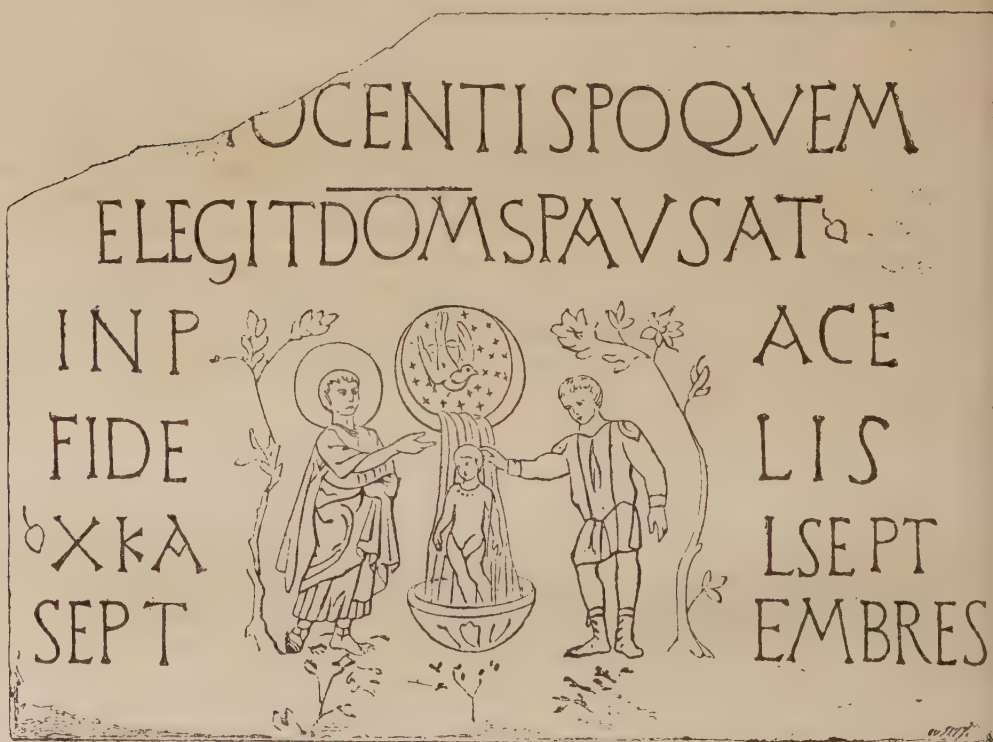 OCENTISPOQVEM
ELEGITDOMSPAVSAT
INP ACE
FIDE LIS
XKA LSEPT
SEPT EMBRES